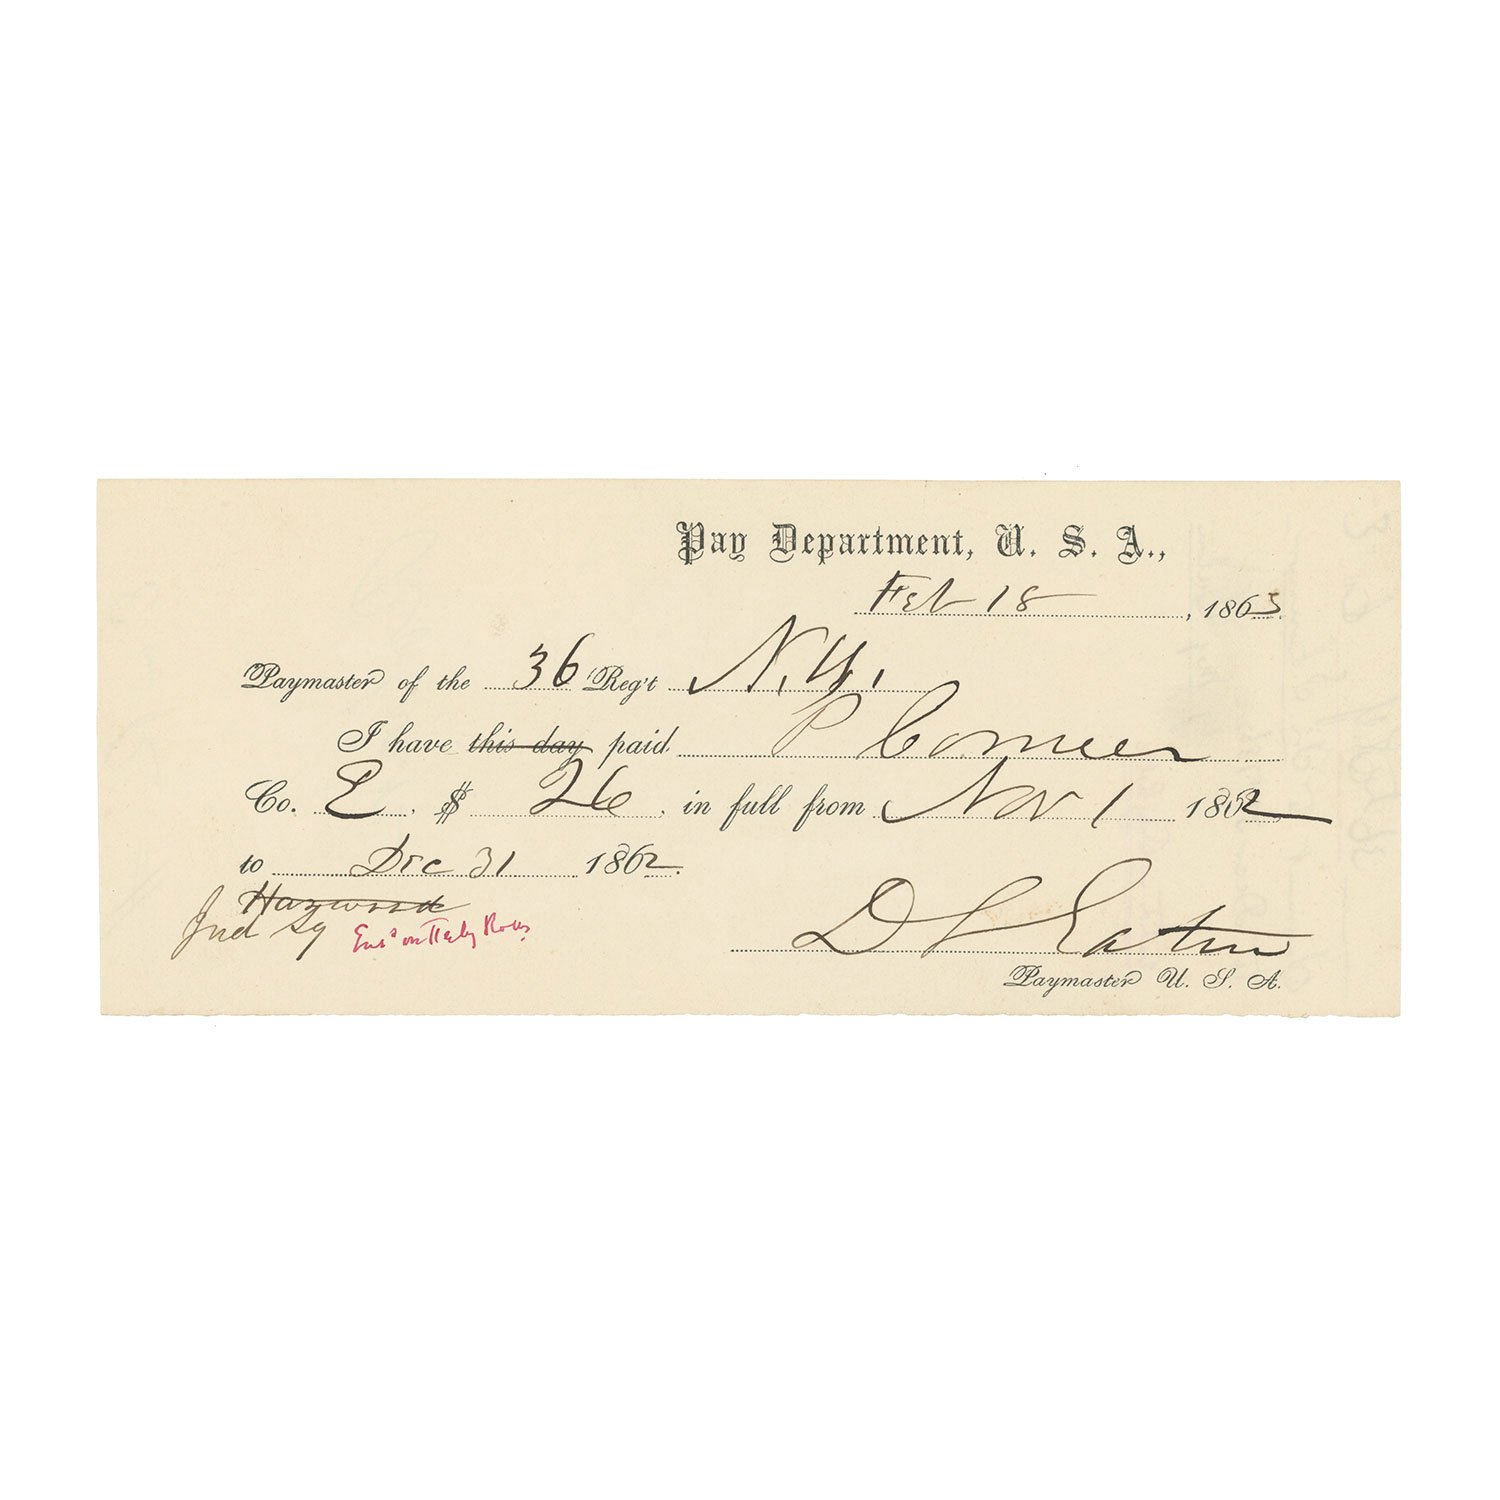 Pay Department, U. S. A.,
Feb 18, 1863.
Paymaster of the 36 Reg't N.Y.
I have this day paid P
Co. E. $ 26. in full from Nov 1 1862
to Dec 31 1862.
Haywood
Jud Sq on Rolls
D Eaton
Paymaster U. S. A.